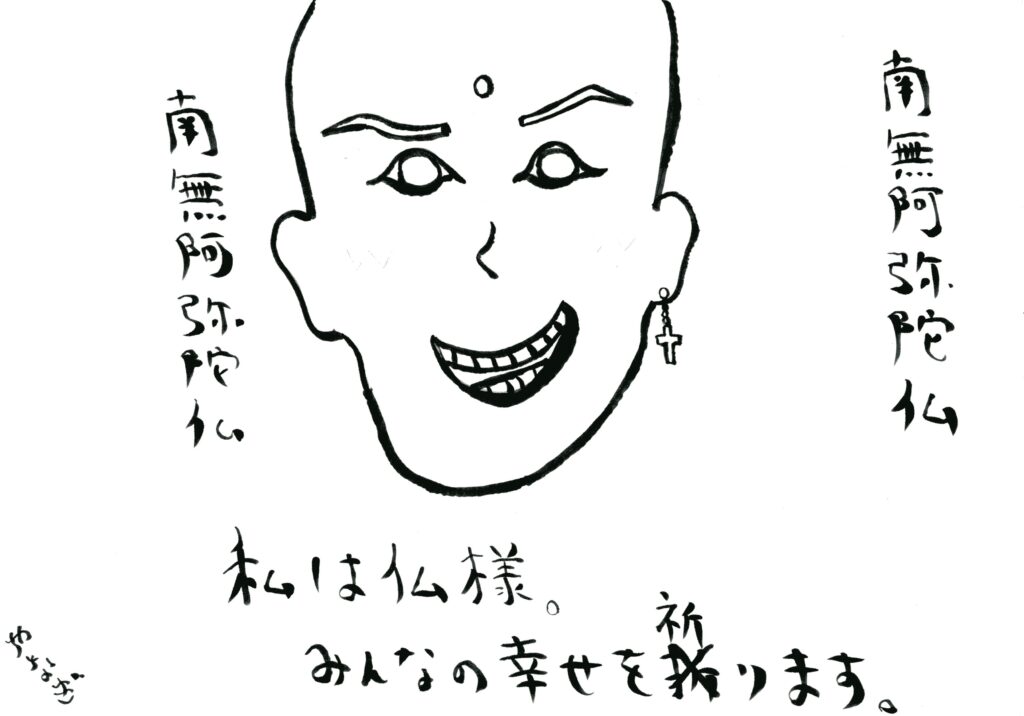 南無阿弥陀仏
南無阿弥陀仏
私は仏様。
みんなの幸せを祈ります。
やなぎ